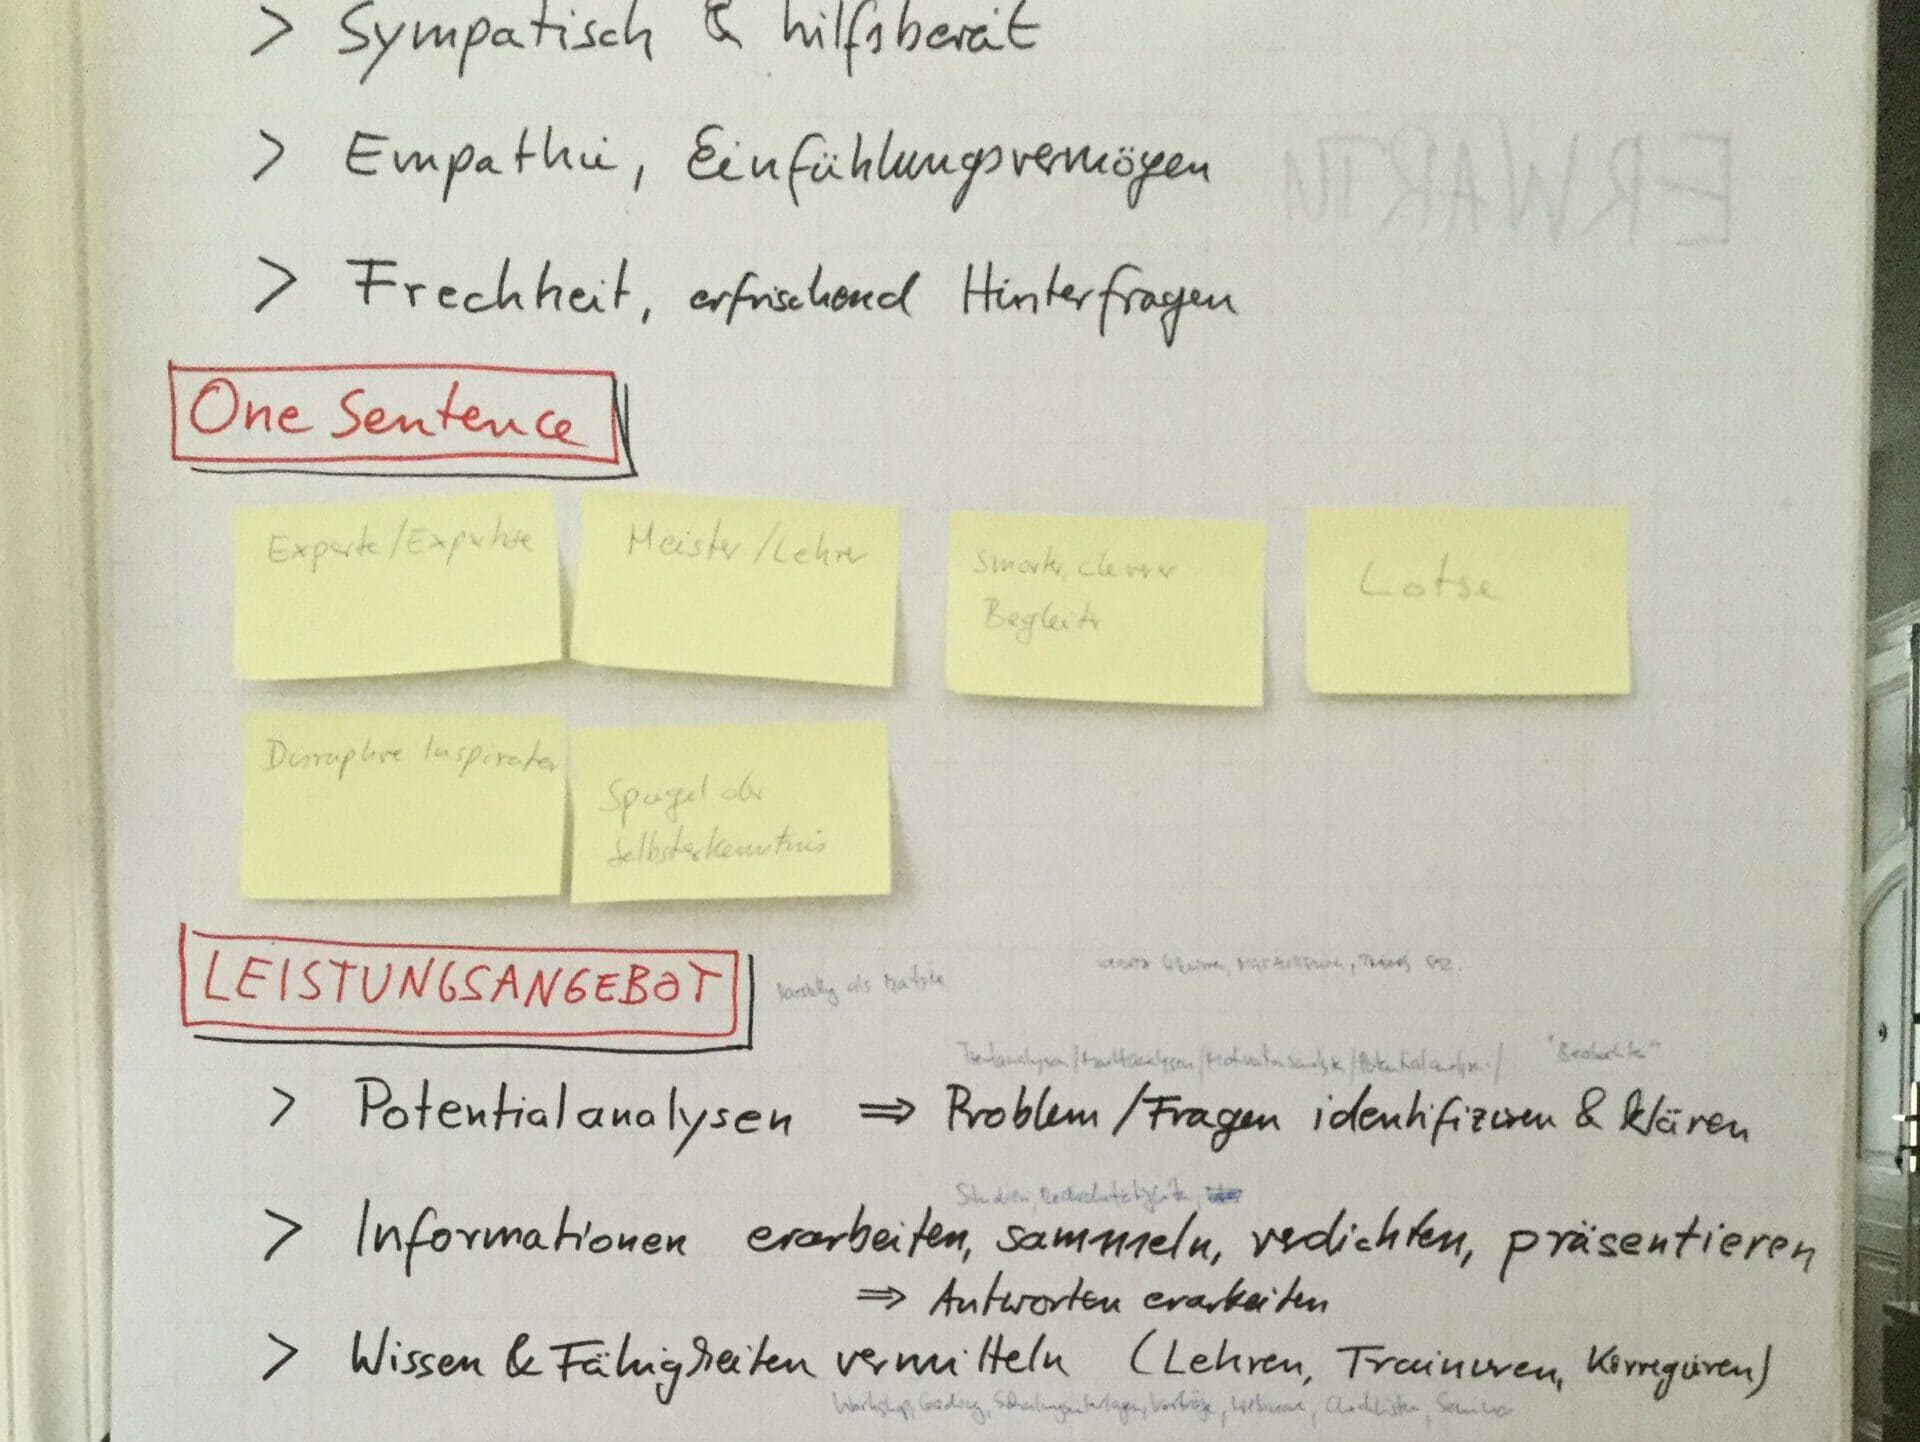 > Sympatisch & hilfsbereit
> Empathie, Einfühlungsvermögen
> Frechheit, erfrischend Hinterfragen
One Sentence
Experte/Expertise
Meister/Lehrer
Smarter, cleverer
Begleiter
Lotse
Inspirator
Spiegel der
Selbsterkenntnis
LEISTUNGSANGEBOT
als Matrix
Trendanalysen/Marktanalysen/Motivationsanalyse/Potentialanalyse/ "Beobachter"
> Potentialanalysen ⇒ Problem/Fragen identifizieren & klären
Studien,
> Informationen erarbeiten, sammeln, verdichten, präsentieren
⇒ Antworten erarbeiten
> Wissen & Fähigkeiten vermitteln (Lehren, Trainieren, Korregieren)
Workshop, Coaching, Schulungsunterlagen, Vorträge, Webinare, Checklisten, Seminar
ERWARTU